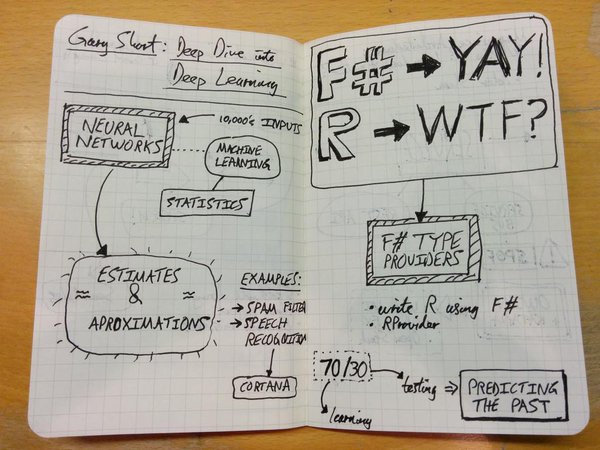 Gary Short: Deep Dive into
Deep Learning
NEURAL
NETWORKS
10,000's INPUTS
MACHINE
LEARNING
STATISTICS
ESTIMATES
≈ & ≈
APROXIMATIONS
EXAMPLES:
→ SPAM FILTER
→ SPEECH
RECOGNITION
CORTANA
F# → YAY!
R → WTF?
F# TYPE
PROVIDERS
• write R using F#
• RProvider
70/30
testing ⇒ PREDICTING
THE PAST
learning